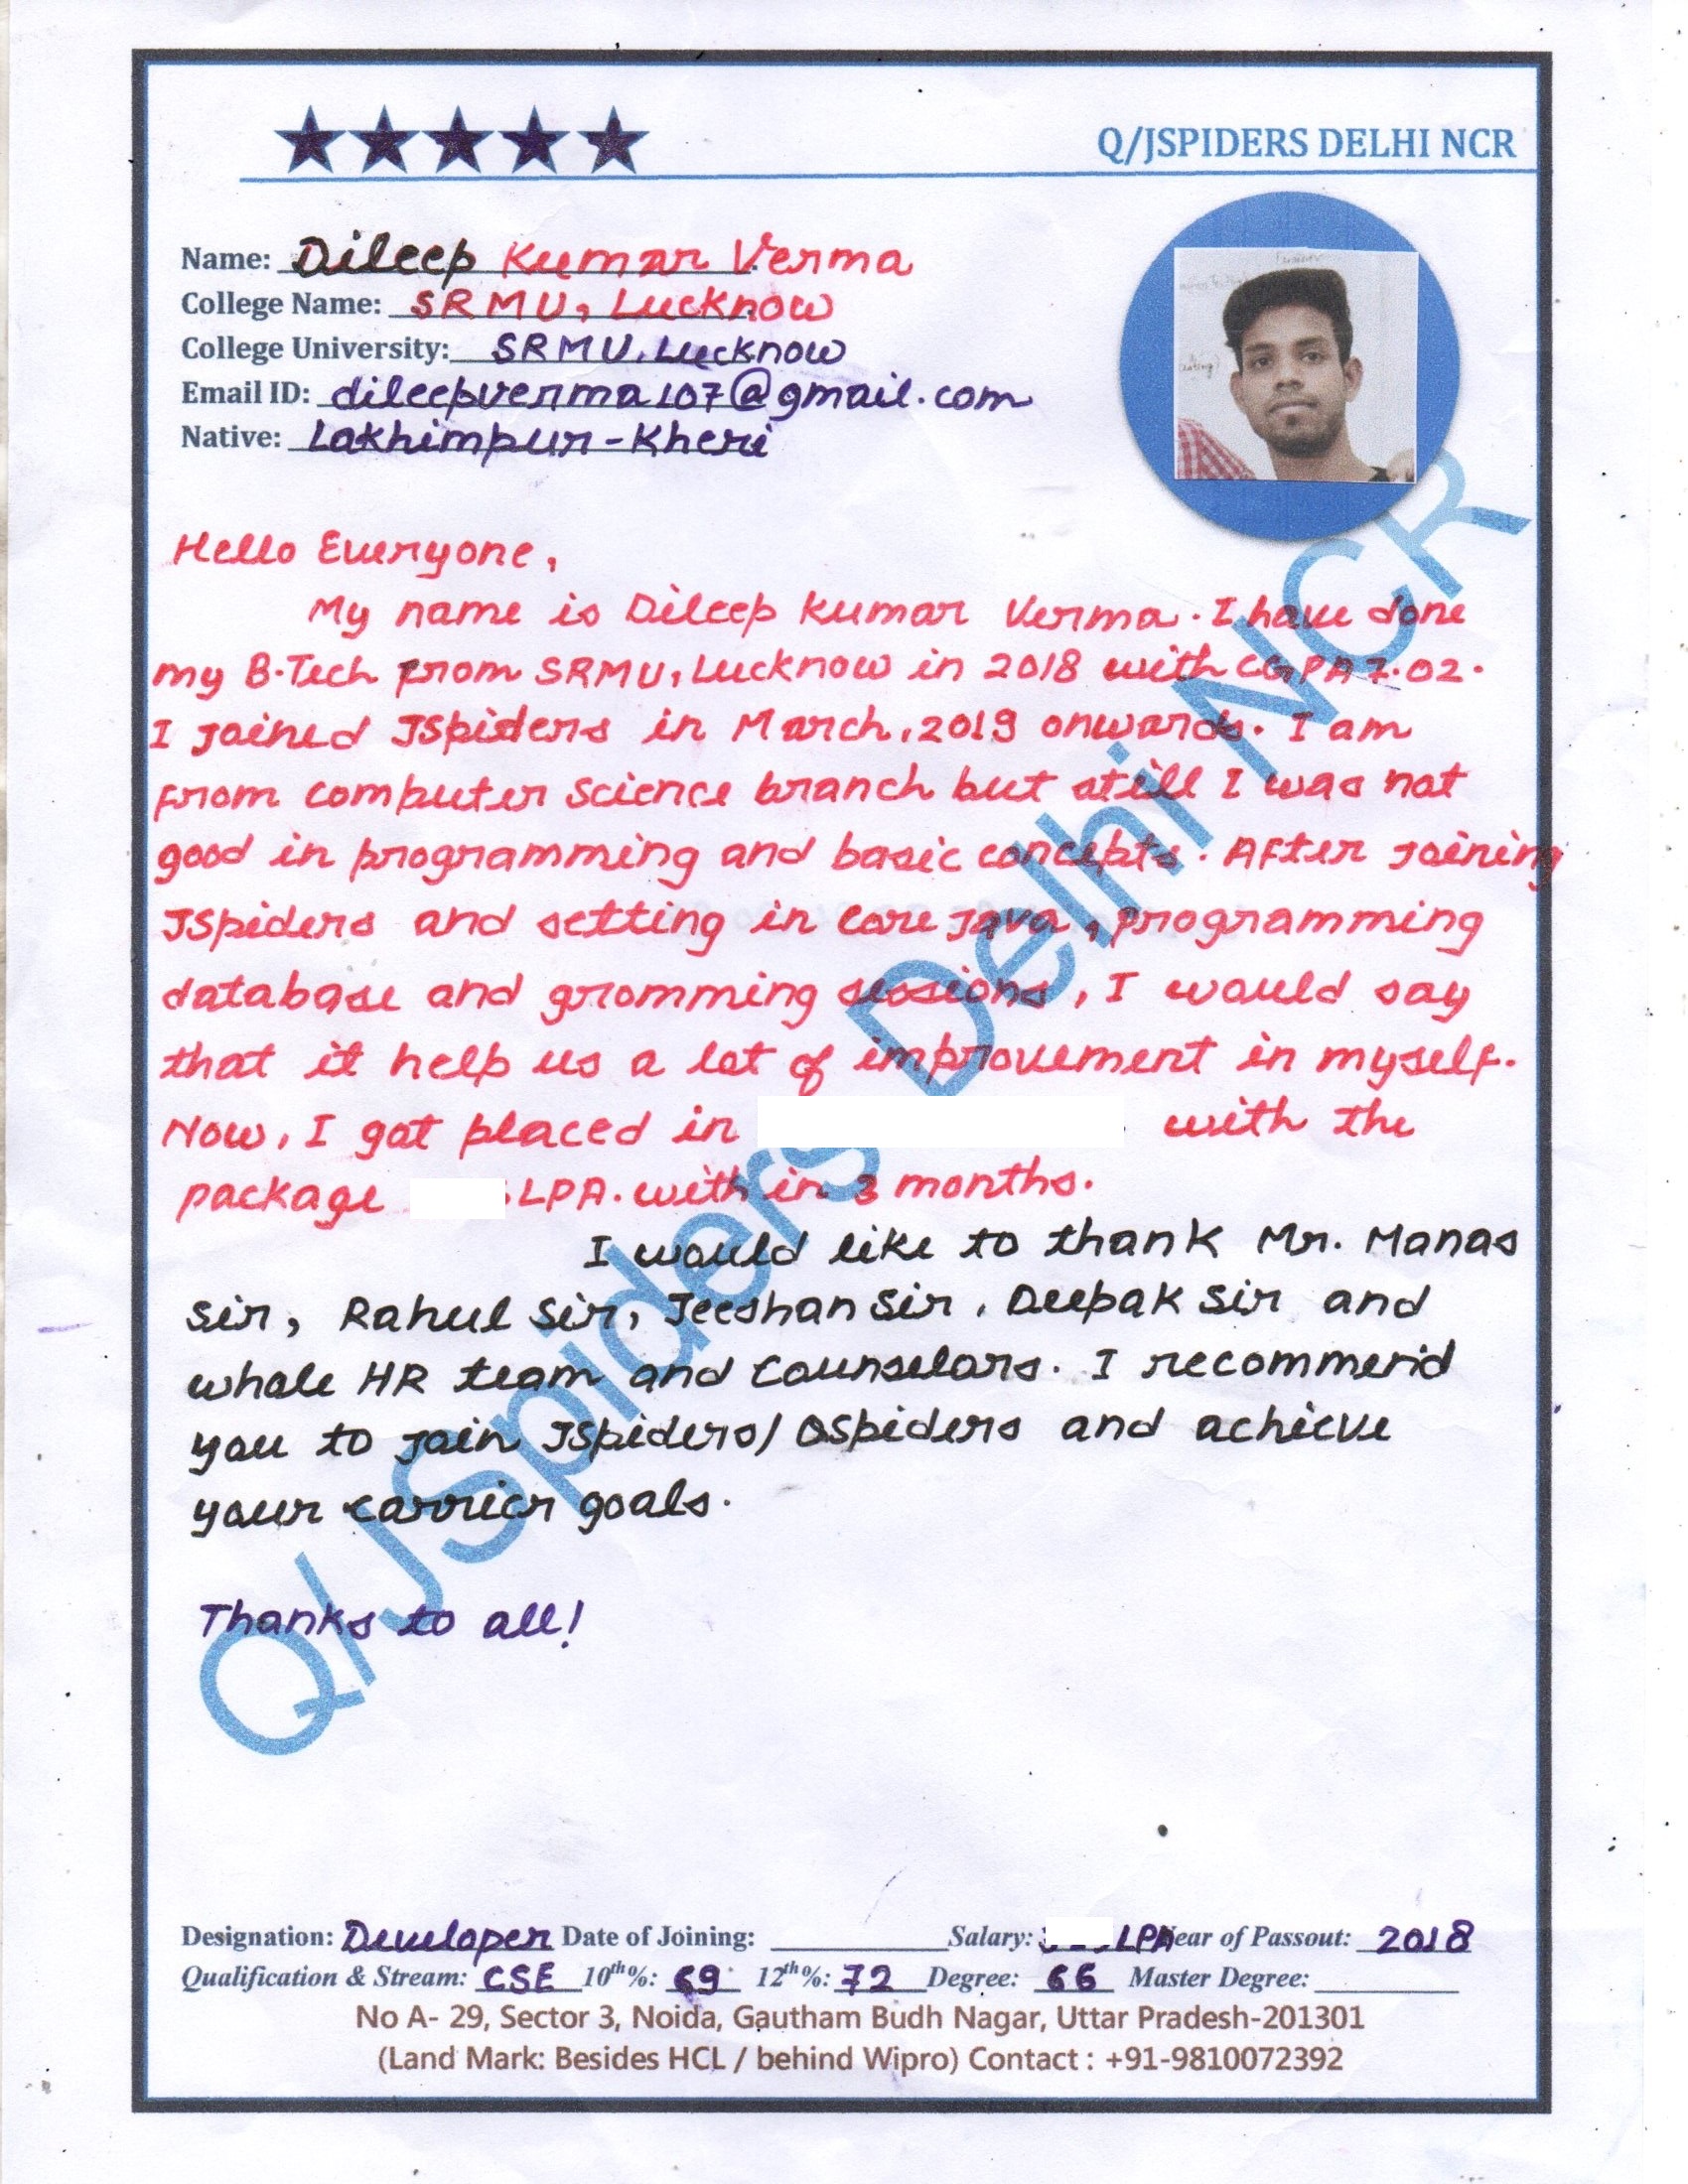 Q/JSPIDERS DELHI NCR
Name: Dileep Kumar Verma
College Name: SRMU, Lucknow
College University: SRMU, Lucknow
Email ID: dileepverma107@gmail.com
Native: Lakhimpur-Kheri
Hello Everyone,
My name is Dileep Kumar Verma. I have done
my B.Tech from SRMU, Lucknow in 2018 with CGPA 7.02.
I joined JSpiders in March, 2019 onwards. I am
from computer science branch but still I was not
good in programming and basic concepts. After joining
JSpiders and setting in core java, programming
database and gromming sessions, I would say
that it help us a lot of improvement in myself.
Now, I got placed in with the
package LPA. with in 3 months.
I would like to thank Mr. Manas
Sir, Rahul Sir, Jeeshan Sir, Deepak Sir and
whole HR team and Counselors. I recommend
you to join JSpiders/QSpiders and achieve
your carrier goals.
Thanks to all!
Q/JSpiders Delhi NCR
Designation: Developer Date of Joining: Salary: LPA Year of Passout: 2018
Qualification & Stream: CSE 10th%: 69 12th%: 72 Degree: 66 Master Degree:
No A- 29, Sector 3, Noida, Gautham Budh Nagar, Uttar Pradesh-201301
(Land Mark: Besides HCL / behind Wipro) Contact : +91-9810072392